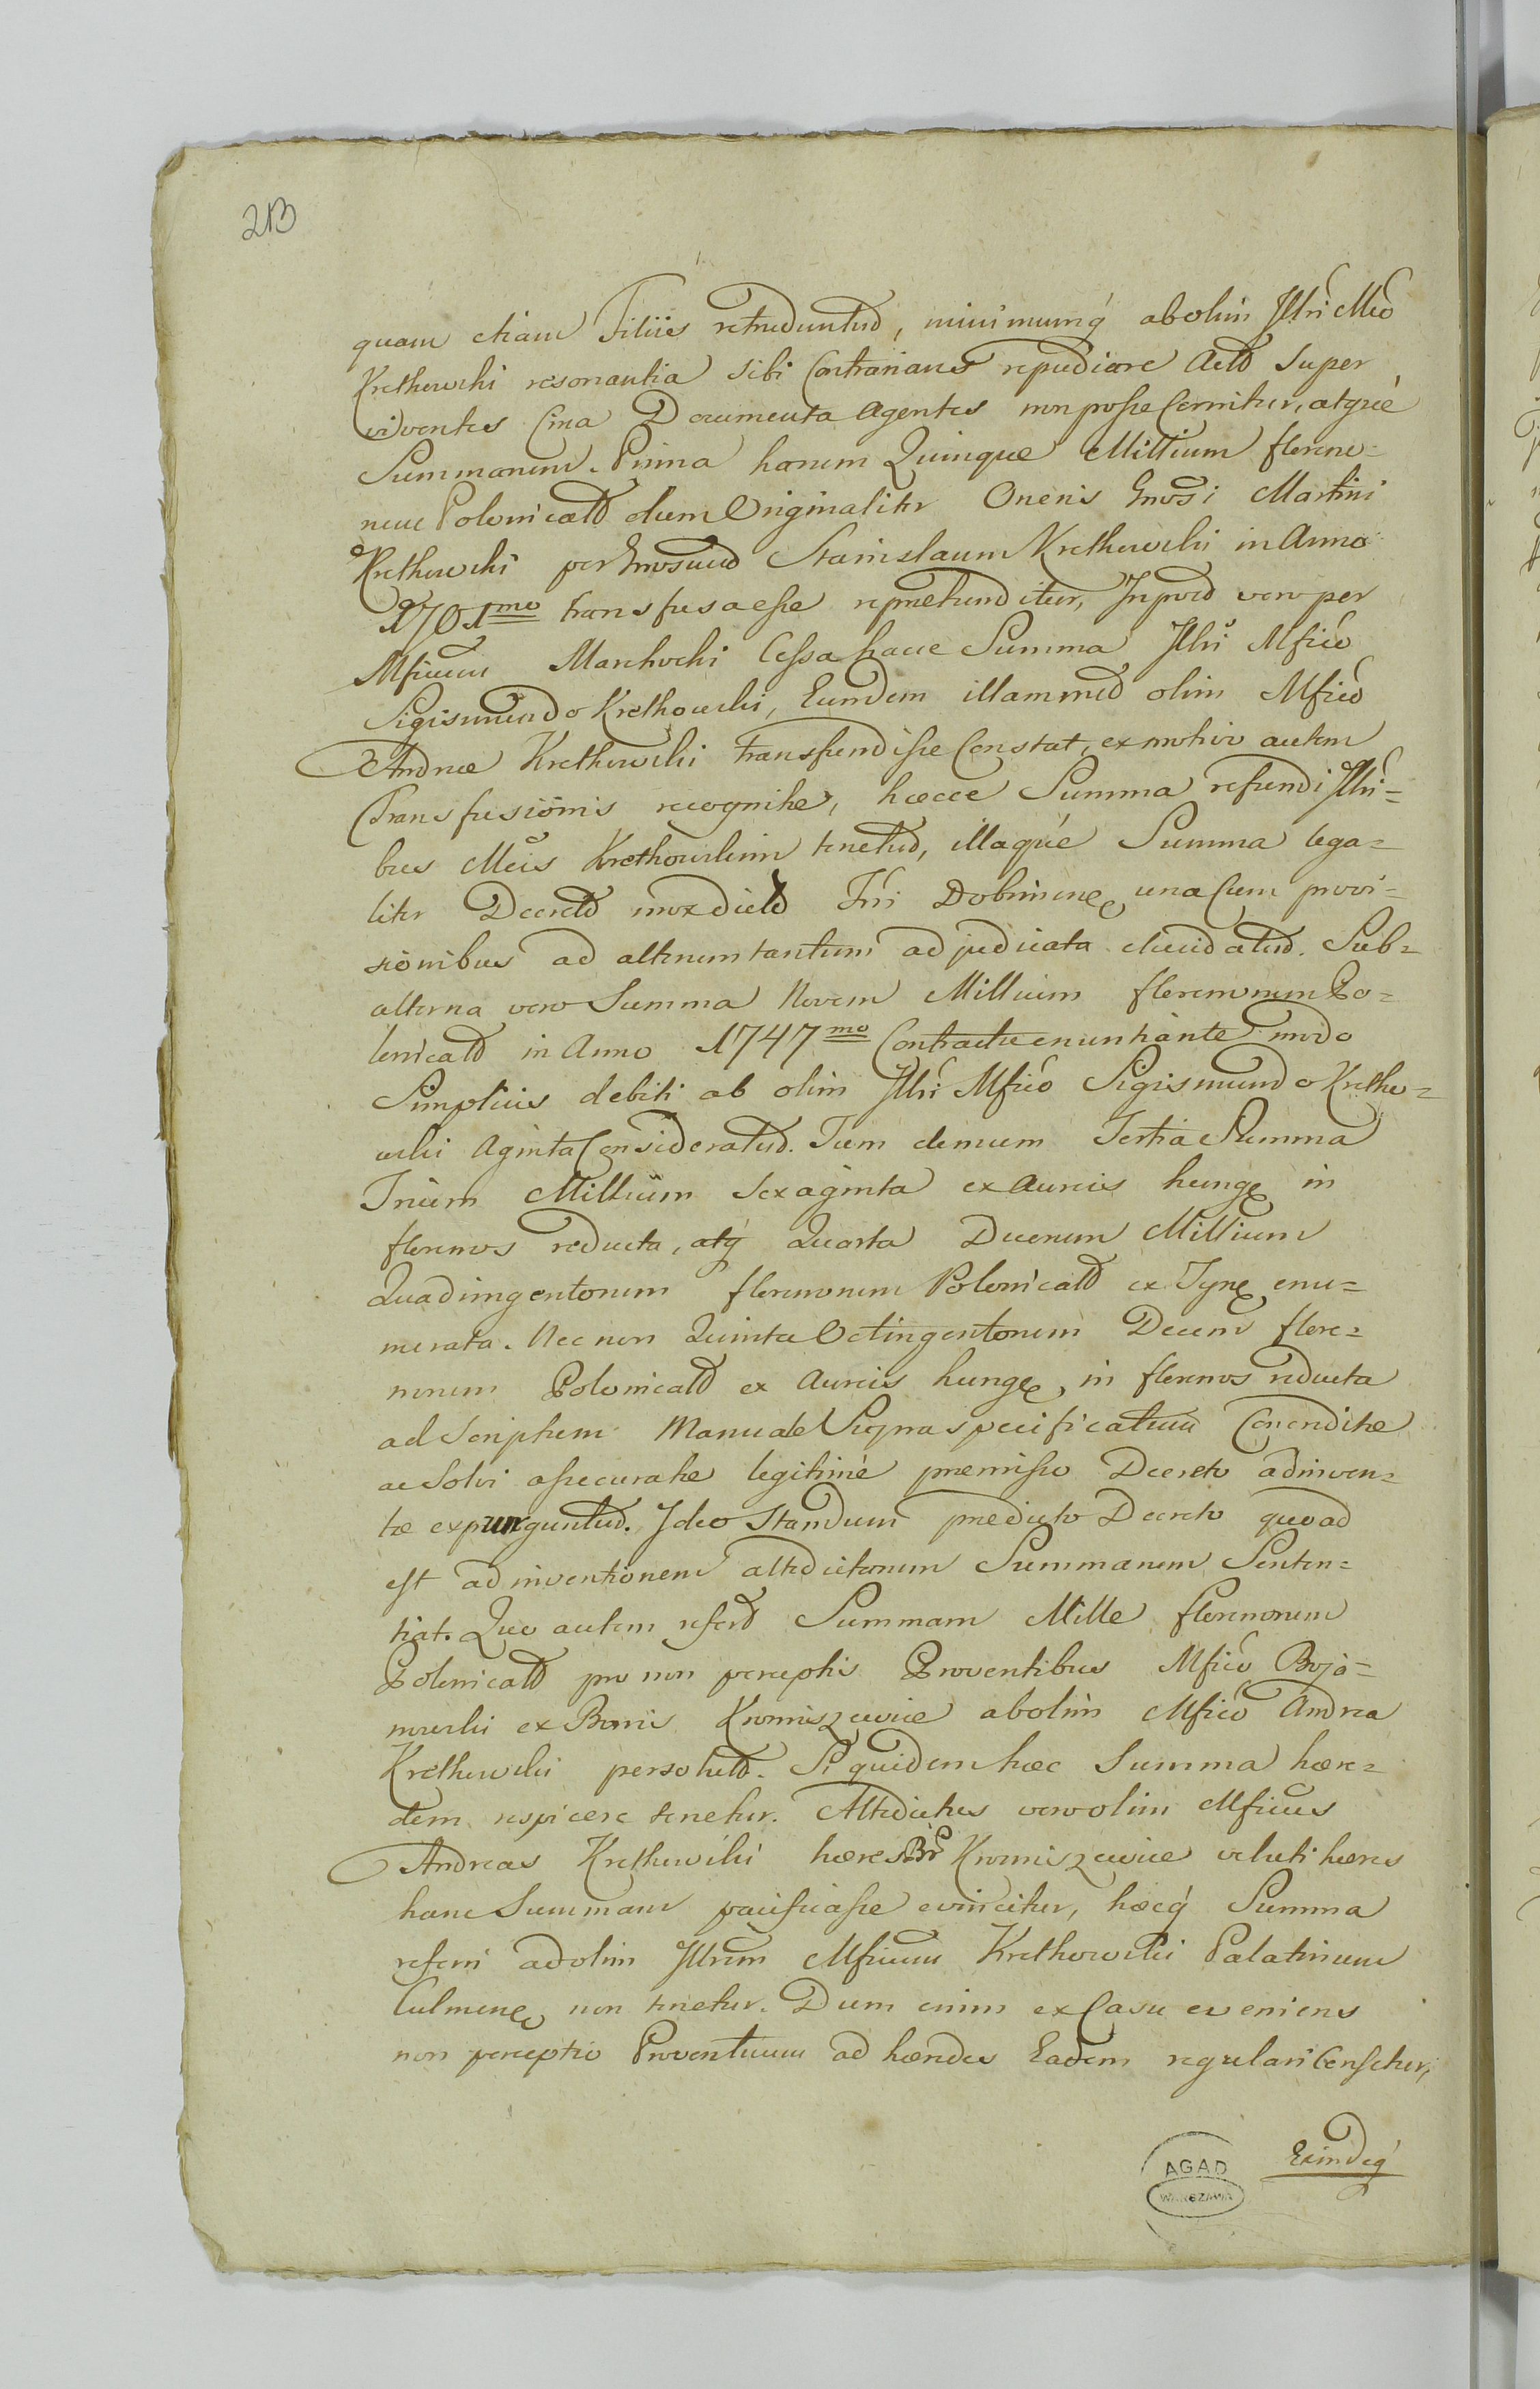 213
quam etiam Filiis retruduntur, minimumq́ ab olim Jllri Mco
Krethowski resonantia sibi Contrariare repudiare Actor super
viventes Circa Documenta Agentes non posse Cernitur, atque
Summarum. Prima harum Quinque Millium floreno-
rum Polonicalium dum Originaliter Oneris Gnosi Martini
Krethowski per Gnosum Stanislaum Krethowski in Anno
1701mo transfusa esse repraehenditur, vero per
Mficum Marchocki Cessa hacce Summa Jllri Mfico
Sigismundo Krethowski, Eundem illammet olim Mfico
Andreae Krethowski transfundisse Constat, ex motivo autem
Transfusionis recognitae, haecce Summa refundi Jllri-
bus Mcis Krethowskim tenetur, illaque Summa lega-
liter Decreto mox dicto Tri Dobrinen, una Cum provi-
sionibus ad alterum tantum adjudicata elucidatur. Sub-
alterna vero Summa Novem Millium florenorum Po-
lonicalium in Anno 1747mo Contractu enuntiante modo
Simplicis debiti ab olim Jllri Mfico Sigismundo Kretho-
wski Consideratur. Tum demum Tertia Summa
Trium Millium Sexaginta ex Aureis hung in
florenos reducta, atq́ Quarta Duorum Millium
Quadringentorum florenorum Polonicalium ex Tynf enu-
merata. Nec non Quinta Octingentorum Decem flore-
norum Polonicalium ex Aureis hung, in florenos reducta
ad Scriptum Manuale Supra specificatum Concreditae
ac Solvi assecuratae legitime praemisso Decreto adinven-
tae expunguntur. Jdeo Standum praedicto Decreto quoad
est adinventionem altedictarum Summarum Senten-
tiat. Quo autem refert Summam Mille florenorum
Polonicalium pro non perceptis Proventibus Mfico Boja-
nowski ex Bonis Kromiszewice ab olim Mfico Andrea
Krethowski persolut. Siquidem haec Summa haere-
dem respicere tenetur. Altedictus vero olim Mficus
Andreas Krethowski haeres Br Kromiszewice veluti haeres
hanc Summam pacificasse evincitur, haecq́ Summa
referri ad olim Jllrem Mficum Krethowski Palatinum
Culmen, non tenetur. Dum enim ex Casu eveniens
non perceptio Proventuum ad haeredes Eadem regulari Censetur,
Eximdeq́
AGAD
WARSZAWA